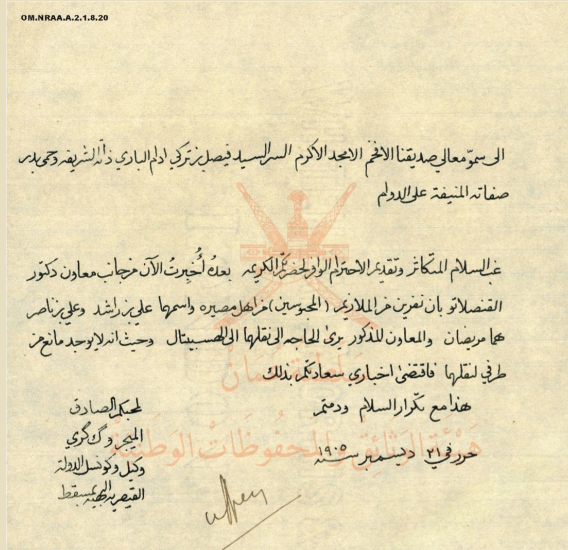 OM.NRAA.A.2.1.8.20
الى سموّ معالي صديقنا الافخم الامجد الاكرم السر السيد فيصل بن تركي ادام الباري ذاته الشريفه وحمى بدر
صفاته المنيفة على الدوام
غب السلام المتكاثر وتقديم الاحترام الوافر لحضرتكم الكريمه بعده أُخبِرتُ الآن من جانب معاون دكتور
القنصلاتو بان نفرين من الملازيم (المحبوسين) من اهل مصيره واسمهما علي بن راشد وعلي بن ناصر
هما مريضان والمعاون المذكور يرىٰ الحاجه الى نقلهما الى الهسبيتال وحيث انه لا يوجد مانع من
طرفي لنقلهما فاقتضىٰ اخباري سعادتكم بذلك
هذا مع تكرار السلام ودمتم
حرر في ٢١ دسمبر سنة ١٩٠٥
لمحبكم الصادق
الميجر و ك گري
وكيل وكونسل الدولة
القيصريه البهيه بمسقط
سلطنة عمان
هيئة الوثائق والمحفوظات الوطنية